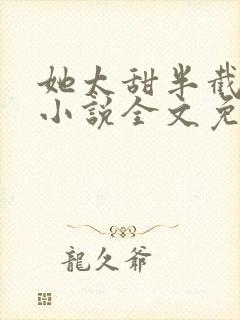 她太甜半截
小說全文免
龍久爺